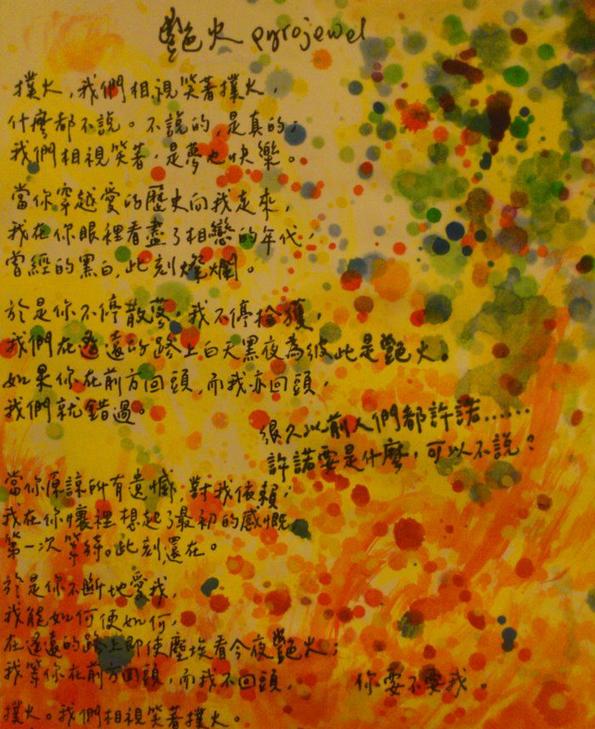 艷火 pyrojewel
撲火，我們相視笑著撲火，
什麼都不說。不說的，是真的；
我們相視笑著，是夢也快樂。
當你穿越愛的歷史向我走來，
我在你眼裡看盡了相戀的年代，
曾經的黑白，此刻燦爛。
於是你不停散落，我不停拾獲，
我們在遙遠的路上白天黑夜為彼此是艷火。
如果你在前方回頭，而我亦回頭，
我們就錯過。
很久以前人們都許諾……
許諾要是什麼，可以不說？
當你原諒所有遺憾，對我依賴，
我在你懷裡想起了最初的感慨
第一次等待。此刻還在。
於是你不斷地愛我，
我能如何便如何，
在遙遠的路上即使塵埃看今夜艷火；
我等你在前方回頭，而我不回頭，
你要不要我。
撲火。我們相視笑著撲火。